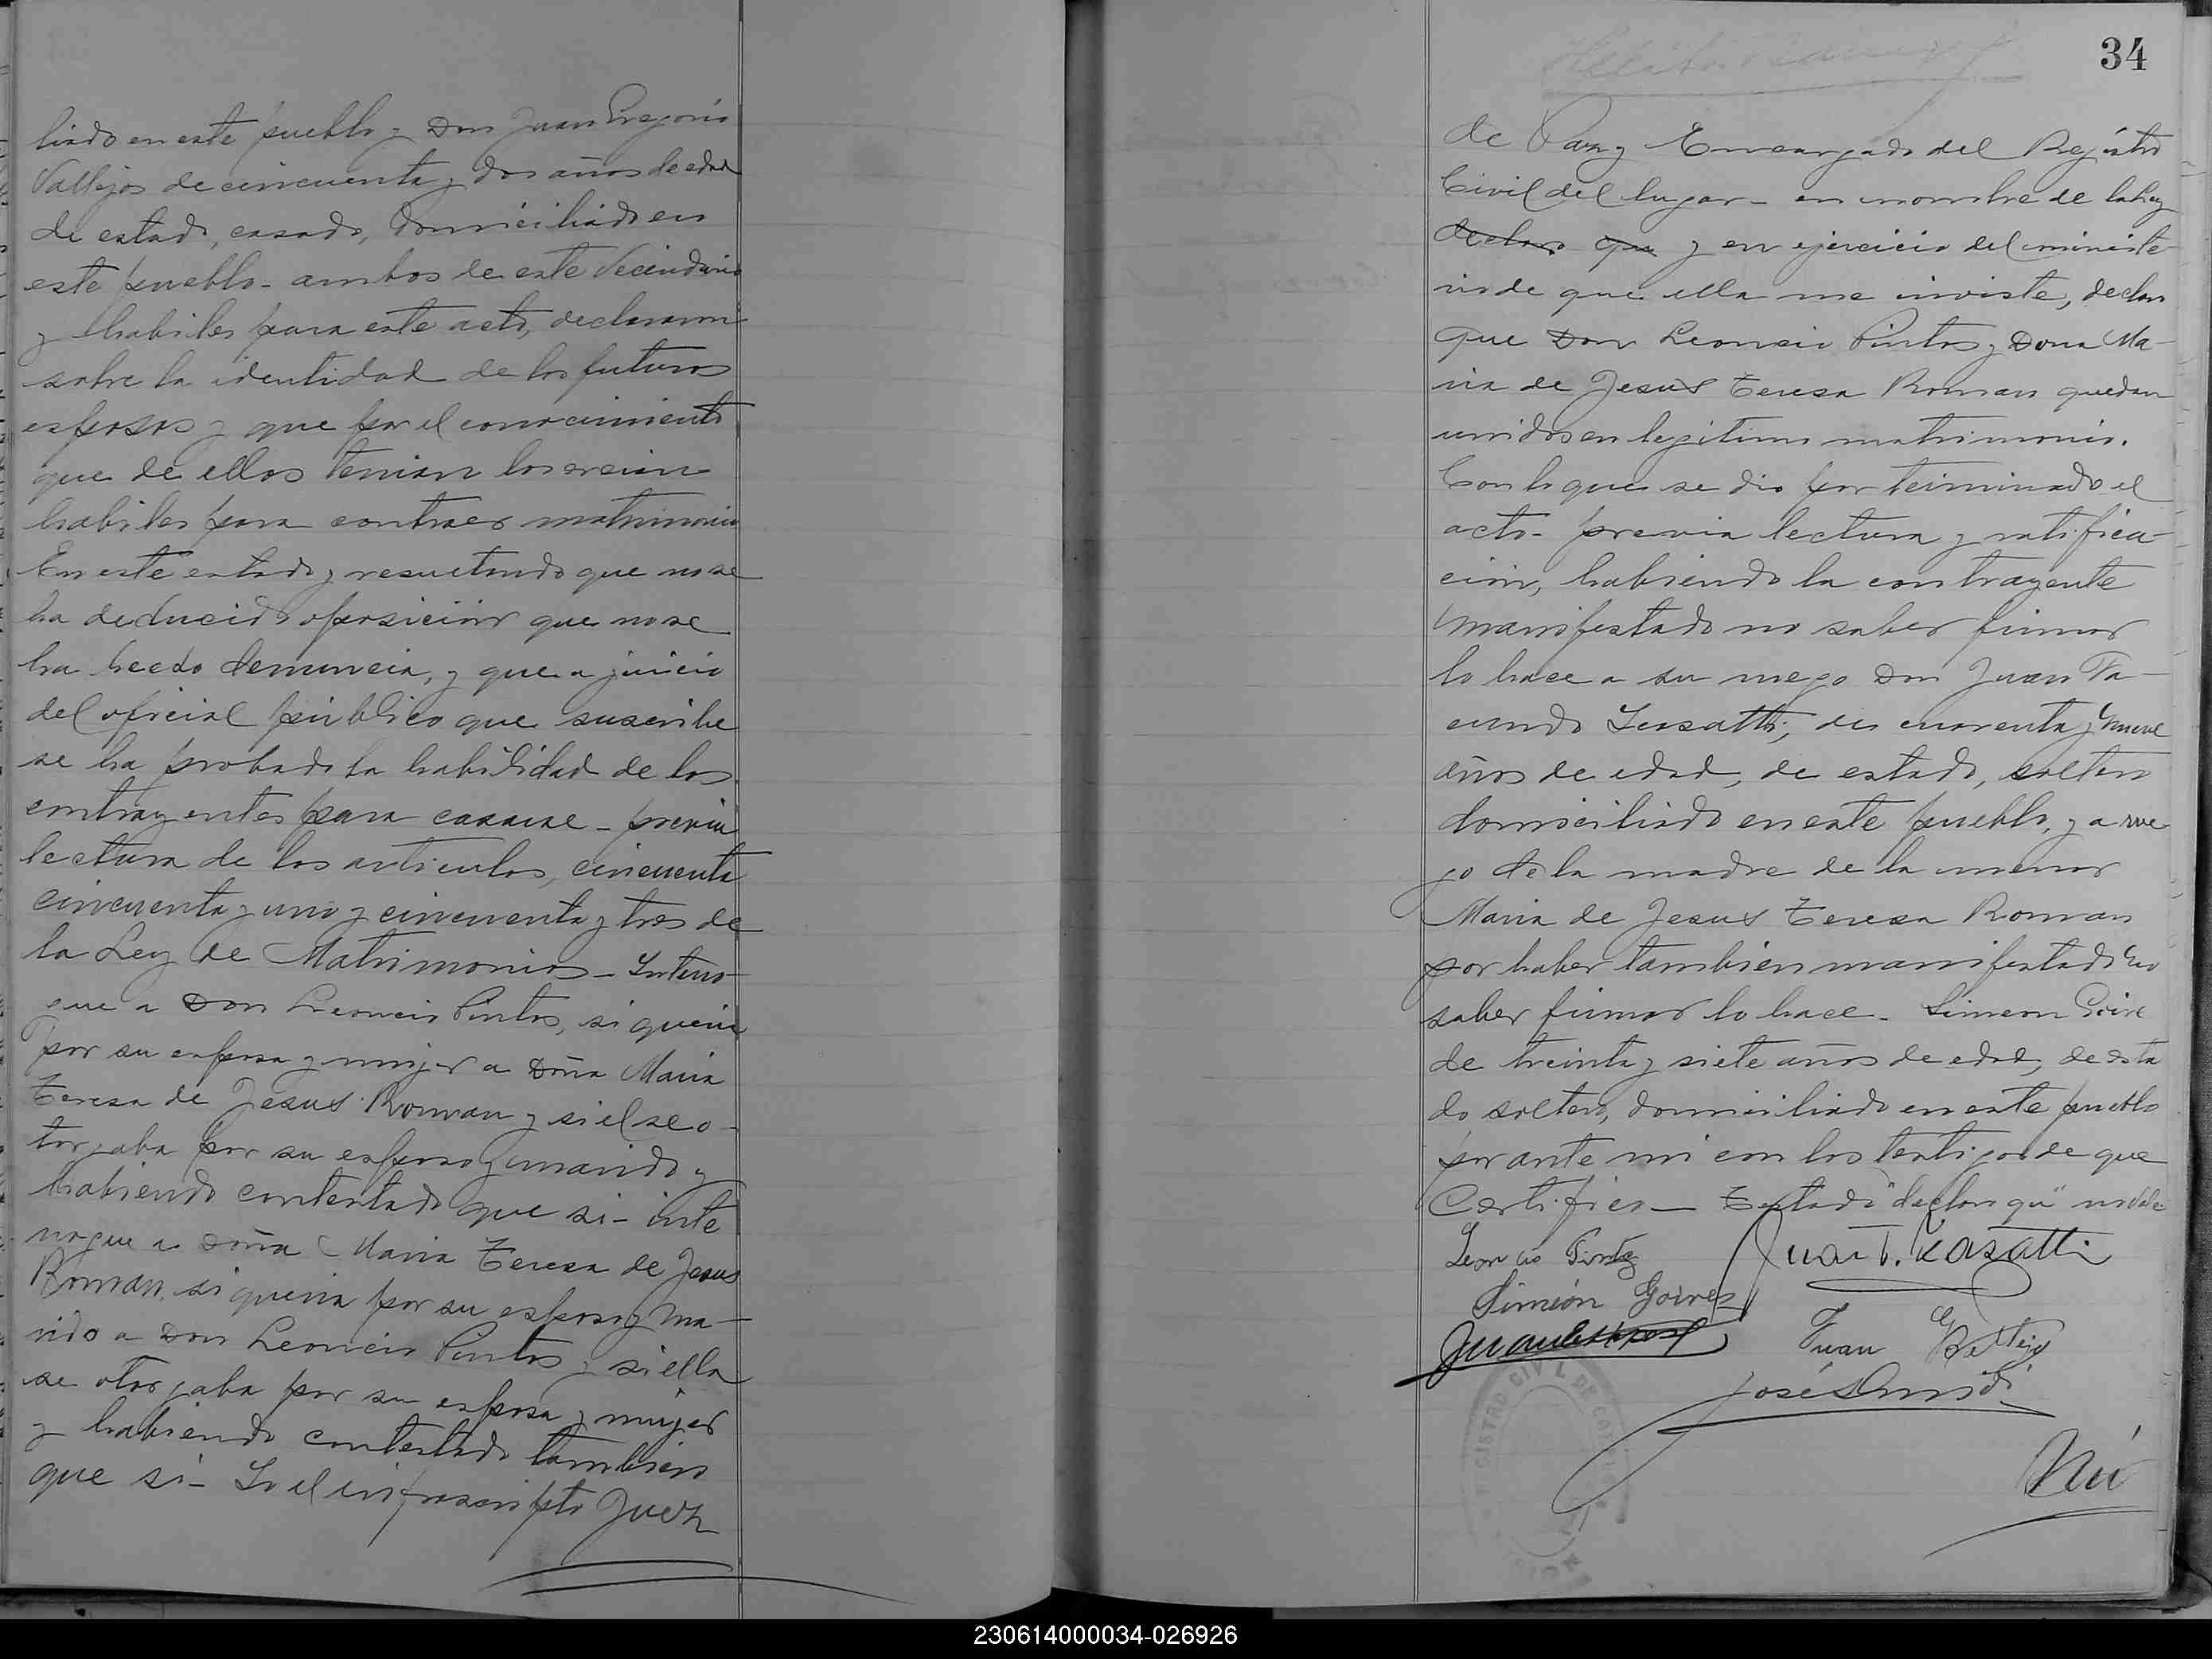 liado en este pueblo y Don Juan Gregorio
Vallejos de cincuenta y dos años de edad
de estado, casado, domiciliado en
este pueblo - ambos de este vecindario
y habiles para este acto, declararon
sobre la identidad de los futuros
esposos y que por el conocimiento
que de ellos tenian los creian
habiles para contraer matrimonio
En este estado y resultando que no se
ha deducido oposicion que no se
ha hecho denuncia, y que a juicio
del oficial público que suscribe
se ha probado la habilidad de los
contrayentes para casarse - previa
lectura de los articulos, cincuenta
cincuenta y uno y cincuenta y tres de
la Ley de Matrimonio - Interro-
que a Don Leoncio Pintos, si queria
por su esposa y mujer a Doña Maria
Teresa de Jesus Roman y si el se o-
torgaba por su esposo y marido y
habiendo contestado que si - inte
rrogue a Doña Maria Teresa de Jesus
Roman si queria por su esposo y ma-
rido a Don Leoncio Pintos y si ella
se otorgaba por su esposa y mujer
y habiendo contestado tambien
que si - Yo el infrascripto Juez
34
de Paz y Encargado del Registro
Civil del lugar - en nombre de la Ley
declaro que y en ejercicio del ministe-
rio de que ella me inviste, declaro
que Don Leoncio Pintos y Doña Ma-
ria de Jesus Teresa Roman quedan
unidos en legitimo matrimonio.
Con lo que se dio por terminado el
acto - previa lectura y ratifica-
cion, habiendo la contrayente
manifestado no saber firmar
lo hace a su ruego Don Juan Fa-
cundo de cuarenta y nueve
años de edad, de estado, soltero
domiciliado en este pueblo, y a rue
go de la madre de la menor
Maria de Jesus Teresa Roman
por haber tambien manifestado no
saber firmar lo hace - Simeon
de treinta y siete años de edad, de esta
do soltero, domiciliado en este pueblo
por ante mi con los testigos de que
Certifico - Testado "declaro que" no vale
Leoncio Pintos
Juan F.
Simeón
Juan
José
REGISTRO CIVIL DE
230614000034-026926